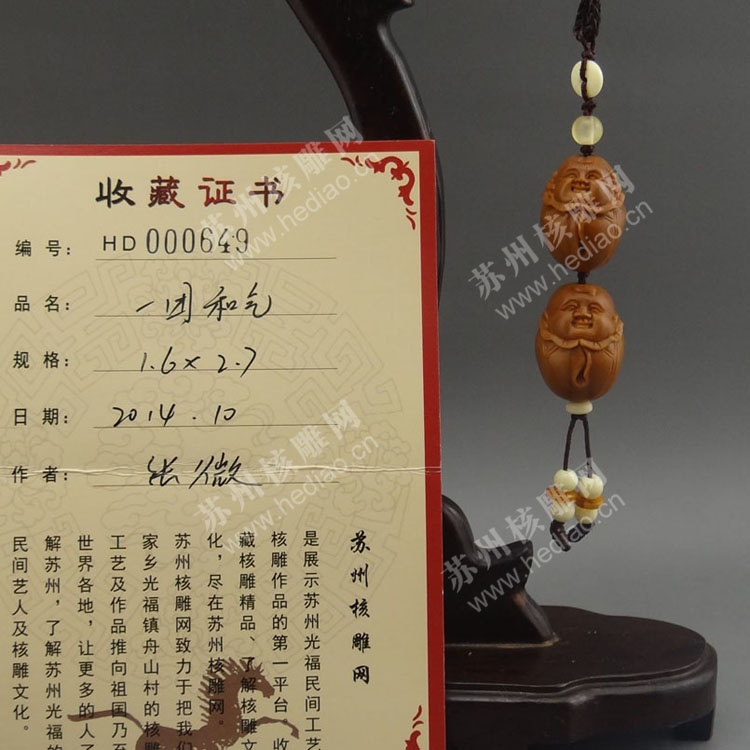 收藏证书
编号: HD 000649
品名: 一团和气
规格: 1.6×2.7
日期: 2014.10
作者: 张微
苏州核雕网
是展示苏州光福民间工艺
核雕作品的第一平台。收
藏核雕精品、了解核雕文
化，尽在苏州核雕网。
苏州核雕网致力于把我们
家乡光福镇舟山村的核雕
工艺及作品推向祖国乃至
世界各地，让更多的人了
解苏州，了解苏州光福的
民间艺人及核雕文化。
苏州核雕网
www.hediao.cn
苏州核雕网
www.hediao.cn
苏州核雕网
www.hediao.cn
苏州核雕网
www.hediao.cn